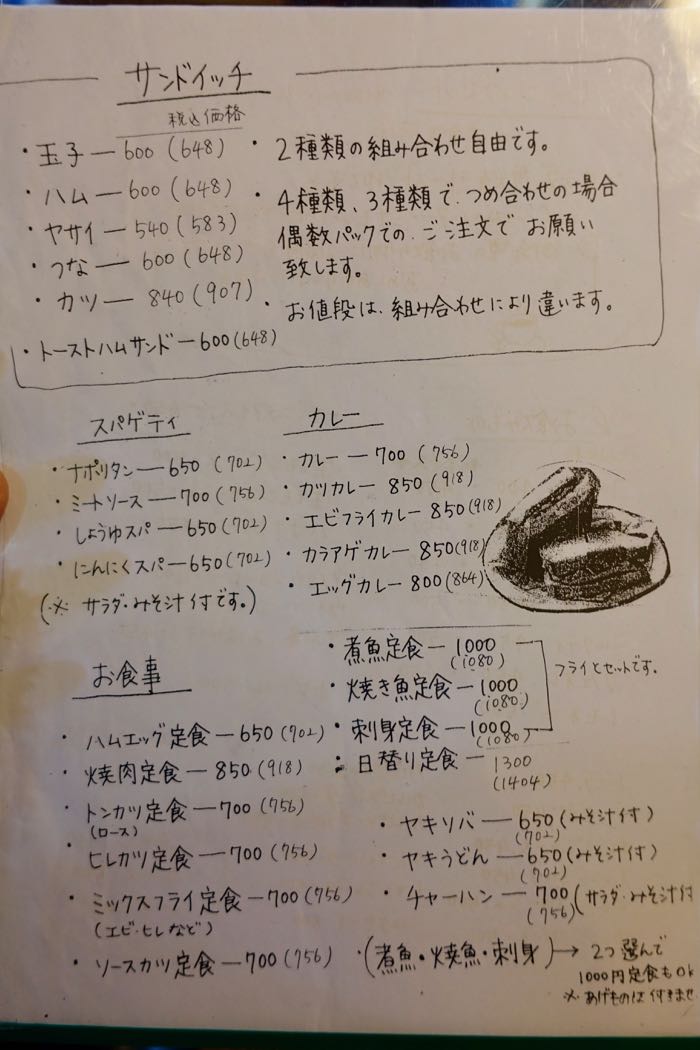 サンドイッチ
税込価格
・玉子—600(648)
・ハム—600(648)
・ヤサイ—540(583)
・つな—600(648)
・カツ—840(907)
・トーストハムサンド—600(648)
・2種類の組み合わせ自由です。
・4種類、3種類で、つめ合わせの場合
偶数パックでの、ご注文でお願い
致します。
・お値段は、組み合わせにより違います。
スパゲティ
・ナポリタン—650(702)
・ミートソース—700(756)
・しょうゆスパ—650(702)
・にんにくスパ—650(702)
(※サラダ・みそ汁付です。)
カレー
・カレー—700(756)
・カツカレー850(918)
・エビフライカレー850(918)
・カラアゲカレー850(918)
・エッグカレー800(864)
お食事
・ハムエッグ定食—650(702)
・焼肉定食—850(918)
・トンカツ定食—700(756)
(ロース)
・ヒレカツ定食—700(756)
・ミックスフライ定食—700(756)
(エビ・ヒレなど)
・ソースカツ定食—700(756)
・煮魚定食—1000
(1080)
・焼き魚定食—1000
(1080)
・刺身定食—1000
(1080)
フライとセットです。
・日替り定食—1300
(1404)
・ヤキソバ—650(みそ汁付)
(702)
・ヤキうどん—650(みそ汁付)
(702)
・チャーハン—700(サラダ・みそ汁付
(756)
・(煮魚・焼魚・刺身)→2つ選んで
1000円定食もOk
※あげものは付きませ